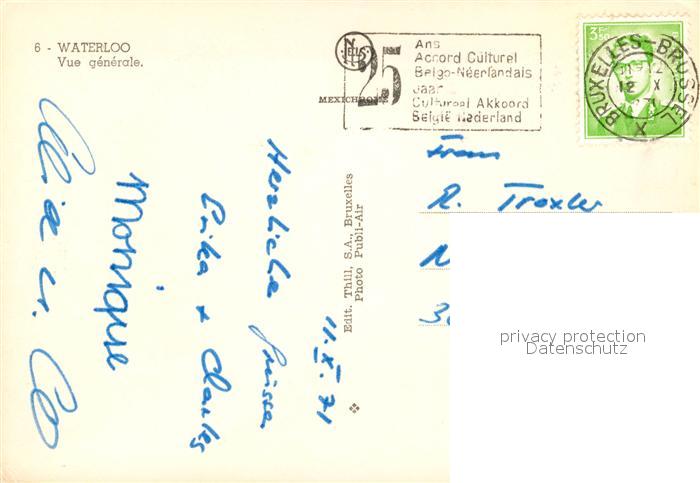 6 - WATERLOO
Vue générale.
MEXICHROME
25
Ans
Accord Culturel
Belgo-Néerlandais
Jaar
Cultureel Akkoord
België Nederland
BRUXELLES-BRUSSEL
12 X
X
3F50
11.X.71
Herzliche Grüsse
Erika + Charles
Monique
Edit. Thill, S.A., Bruxelles
Photo Publi-Air
R. Troxler
N
privacy protection
Datenschutz